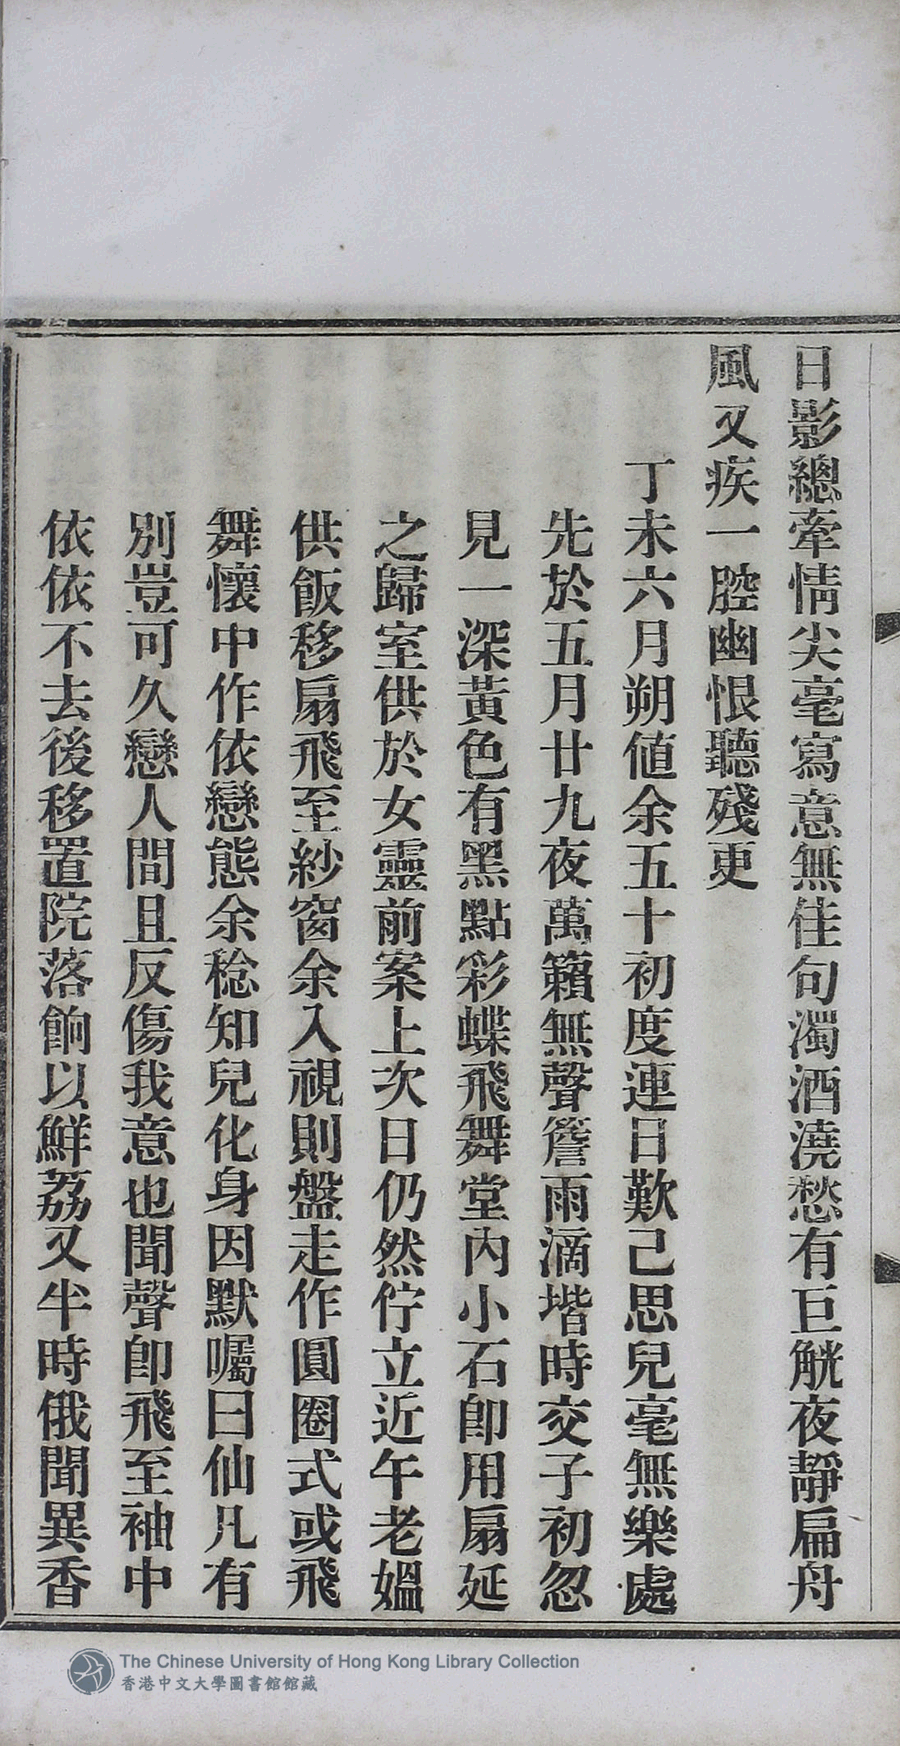 日影總牽情尖毫寫意無佳句濁酒澆愁有巨觥夜靜扁舟
風又疾一腔幽恨聽殘更
丁未六月朔値余五十初度連日歎己思兒毫無樂處
先於五月廿九夜萬籟無聲簷雨滴堦時交子初忽
見一深黃色有黑點彩蝶飛舞堂內小石卽用扇延
之歸室供於女靈前案上次日仍然佇立近午老媼
供飯移扇飛至紗窗余入視則盤走作圓圈式或飛
舞懷中作依戀態余稔知兒化身因默囑曰仙凡有
別豈可久戀人間且反傷我意也聞聲卽飛至袖中
依依不去後移置院落餉以鮮荔又半時俄聞異香
The Chinese University of Hong Kong Library Collection
香港中文大學圖書館館藏